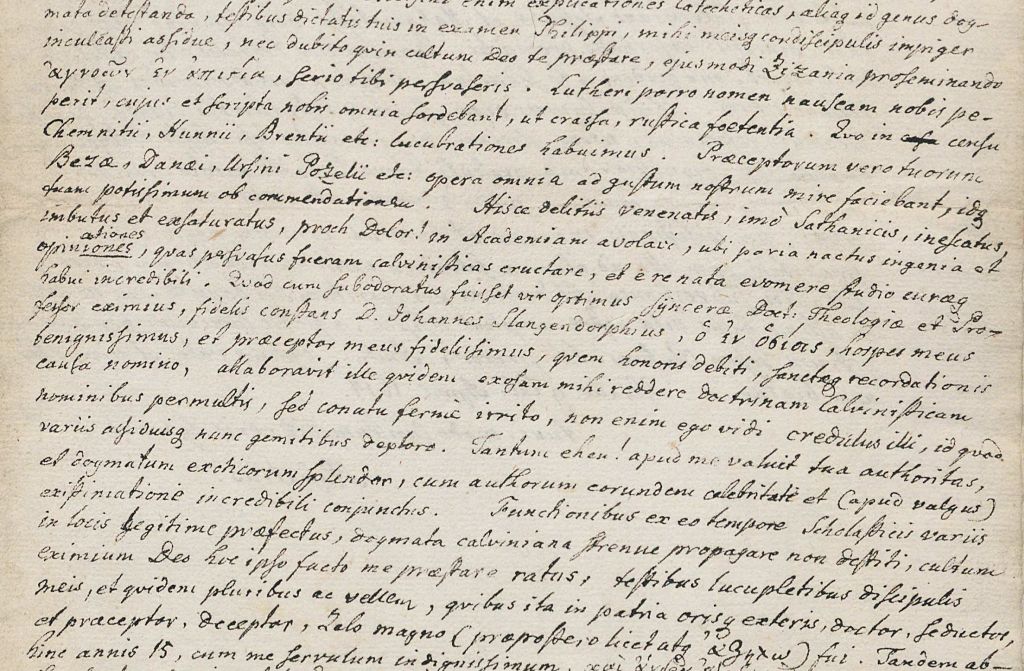 enim explicationes Catecheticas, aliaq id genus dog-
mata detestanda, testibus dictatis tuis in examen Philippi, mihi meisq condiscipulis impiger
inculcasti assidue, nec dubito quin cultum Deo te præstare, ejusmodi Zizania proseminando
ἀγνοῶν ἐν ἀπιστίᾳ, serio tibi persvaseris. Lutheri porro nomen nauseam nobis pe-
perit, cujus et scripta nobis omnia sordebant, ut crassa, rustica foetentia. Quo in censu
Chemnitii, Hunnii, Brentii etc: lucubrationes habuimus. Præceptorum vero tuorum
Bezæ, Danæi, Ursini Pozelii etc: opera omnia ad gustum nostrum mire faciebant, idq
tuam potissimum ob commendationem. Hisce delitiis venenatis, imò Sathanicis, inescatus,
imbutus et exsaturatus, proch Dolor! in Academiam avolavi, ubi paria nactus ingenia et
opiniones ationes, quas persvasus fueram calvinisticas eructare, et e re nata evomere studio curaq
habui incredibili. Quod cum subodoratus fuisset vir optimus synceræ Doct: Theologiæ et Pro-
fessor eximius, fidelis constans D. Johannes Slangendorphius, ὁ ἐν ὁσίοις, hospes meus
benignissimus, et præceptor meus fidelissimus, quem honoris debiti, sanctæq recordationis
causa nomino, allaboravit ille quidem exosam mihi reddere doctrinam Calvinisticam
nominibus permultis, sed conatu ferme irrito, non enim ego vidi credulus illi, id quod
variis assiduisq nunc gemitibus deploro. Tantum eheu! apud me valuit tua authoritas,
et dogmatum exoticorum splendor, cum authorum eorundem celebritate et (apud vulgus)
existimatione incredibili conjunctus. Functionibus ex eo tempore Scholasticis variis
in locis legitime præfectus, dogmata calviniana strenue propagare non destiti, cultum
eximium Deo hoc ipso facto me præstare ratus, testibus lucupletibus discipulis
meis, et quidem pluribus ac vellem, quibus ita in patria orisq exteris, doctor, seductor,
et præceptor, deceptor, Zelo magno (præpostero licet atq) fui. Tandem ab-
hinc annis 15, cum me servulum indignissimum,